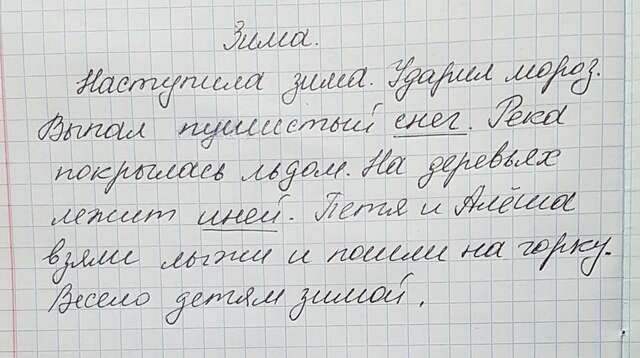 Зима.
Наступила зима. Ударил мороз.
Выпал пушистый снег. Река
покрылась льдом. На деревьях
лежит иней. Петя и Алёша
взяли лыжи и пошли на горку.
Весело детям зимой.